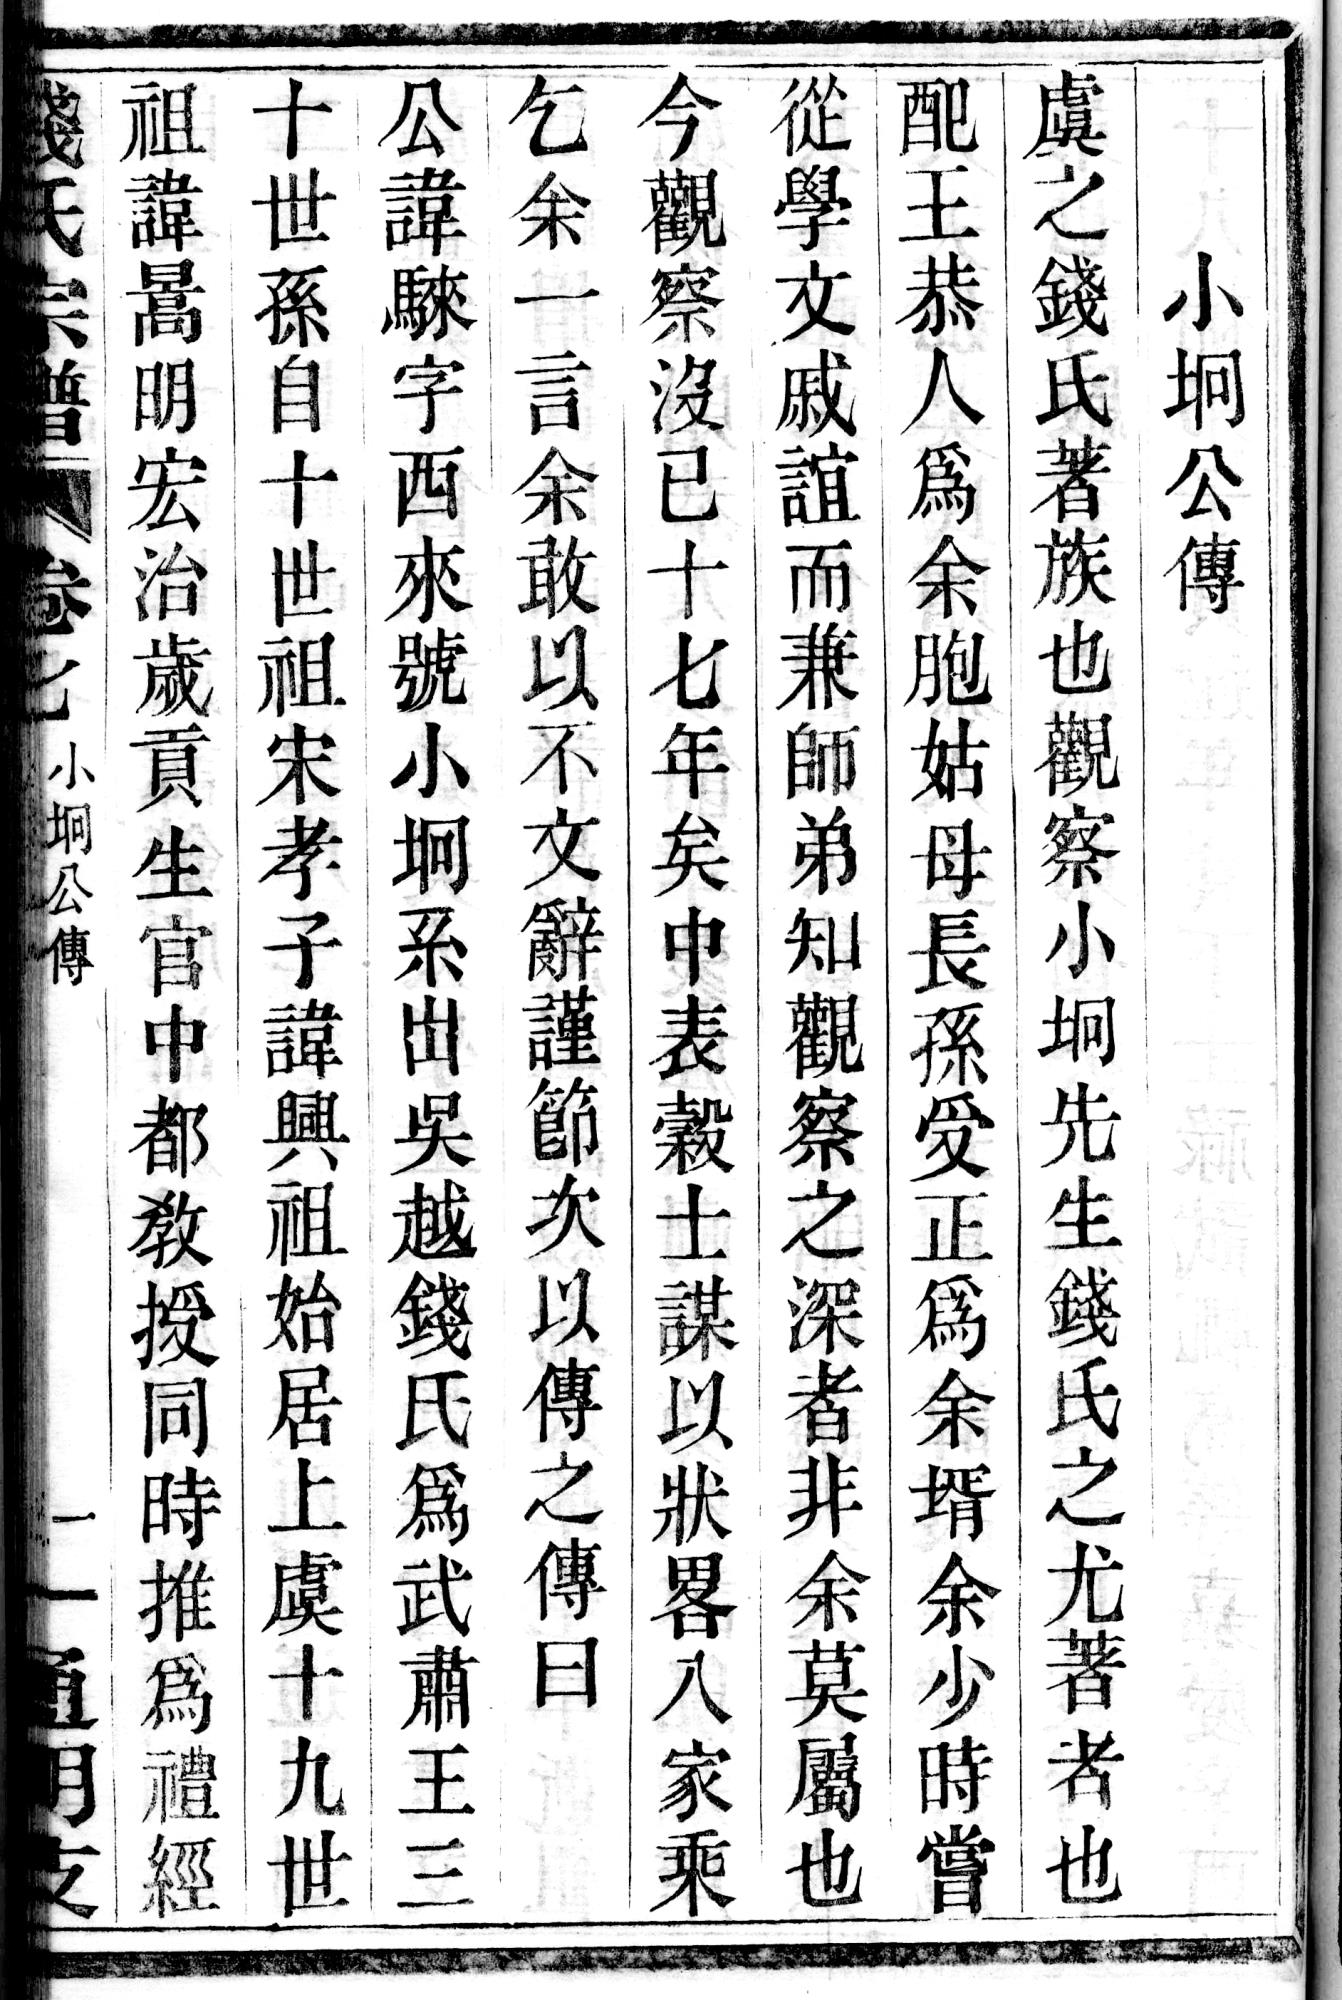 小坰公傳
虞之錢氏著族也觀察小坰先生錢氏之尤著者也
配王恭人爲余胞姑母長孫受正爲余壻余少時嘗
從學文戚誼而兼師弟知觀察之深者非余莫屬也
今觀察沒已十七年矣中表穀士謀以狀畧入家乘
乞余一言余敢以不文辭謹節次以傳之傳曰
公諱騋字西來號小坰系出吳越錢氏爲武肅王三
十世孫自十世祖宋孝子諱興祖始居上虞十九世
祖諱暠明宏治歲貢生官中都教授同時推爲禮經
錢氏宗譜 卷七 小坰公傳 一 通明支